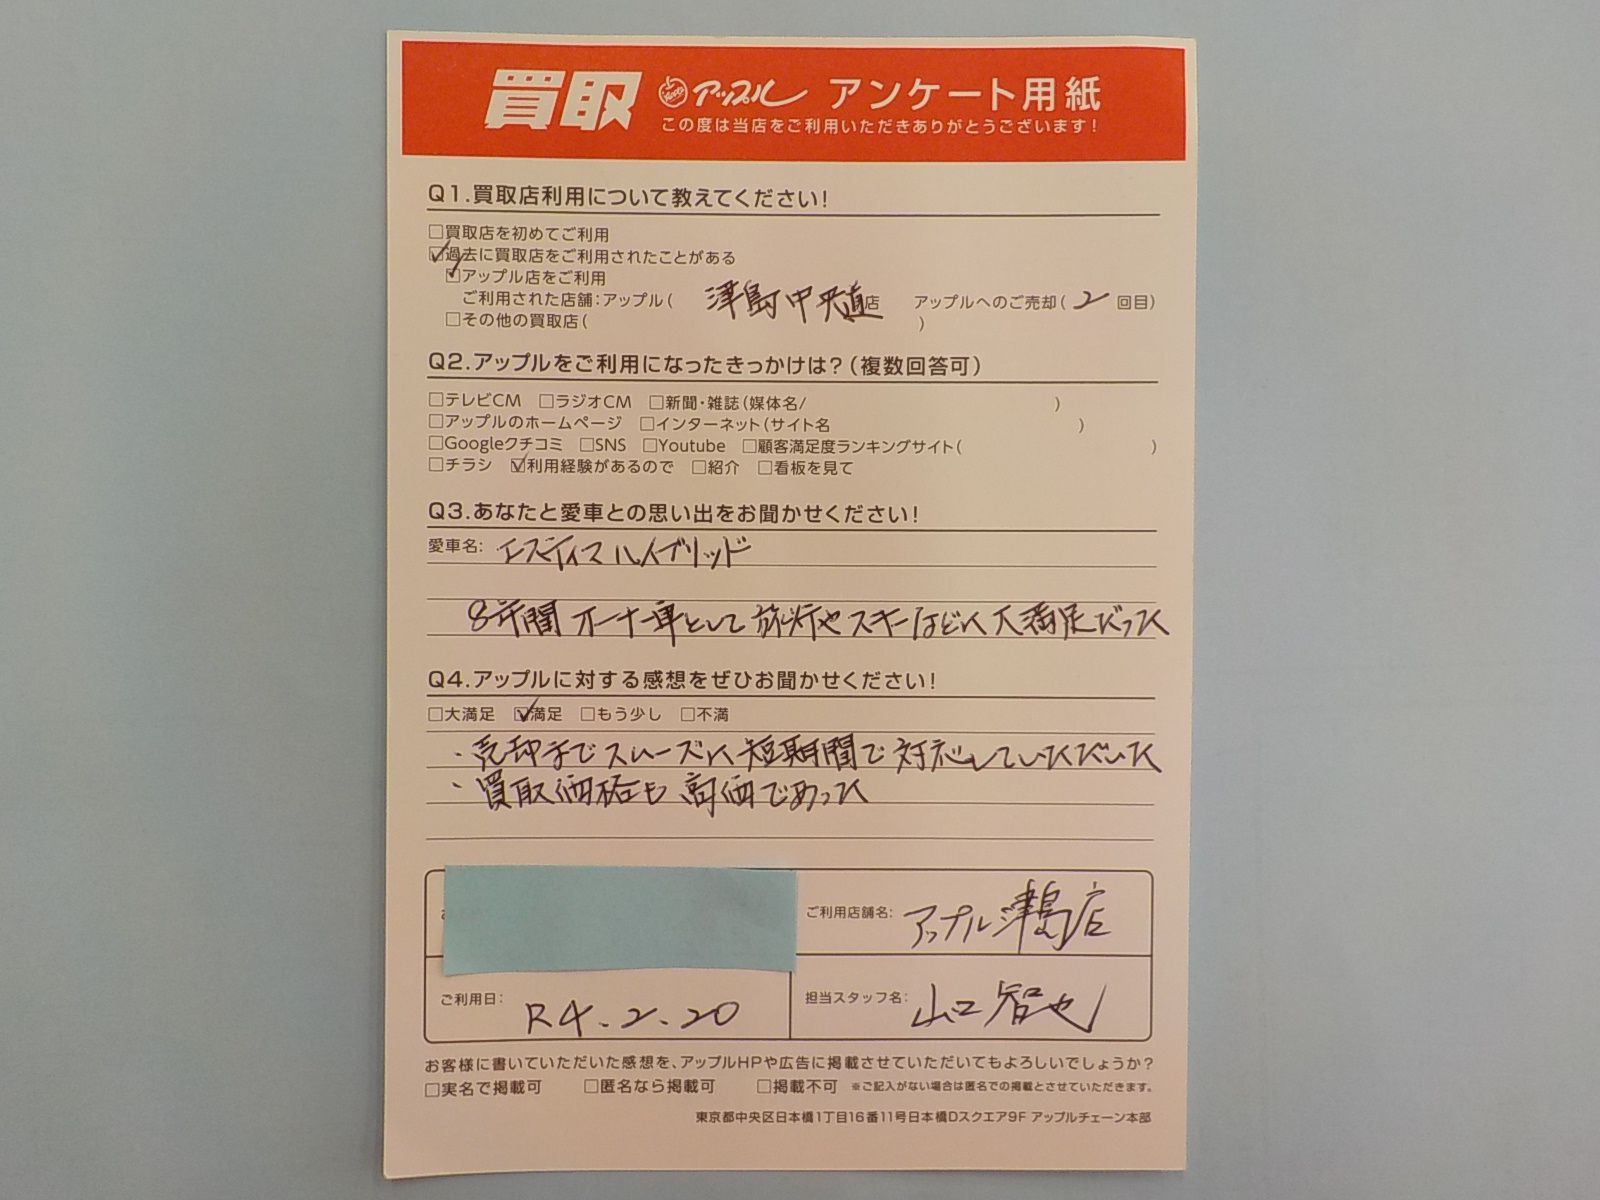 買取 アップル アンケート用紙
この度は当店をご利用いただきありがとうございます!
Q1.買取店利用について教えてください!
□買取店を初めてご利用
☑過去に買取店をご利用されたことがある
☑アップル店をご利用
ご利用された店舗:アップル( 津島中央道店 アップルへのご売却( 2 回目)
□その他の買取店( )
Q2.アップルをご利用になったきっかけは?(複数回答可)
□テレビCM □ラジオCM □新聞・雑誌(媒体名/ )
□アップルのホームページ □インターネット(サイト名 )
□Googleクチコミ □SNS □Youtube □顧客満足度ランキングサイト( )
□チラシ ☑利用経験があるので □紹介 □看板を見て
Q3.あなたと愛車との思い出をお聞かせください!
愛車名: エスティマハイブリッド
8年間オーナー車として旅行やスキーなどに大満足だった
Q4.アップルに対する感想をぜひお聞かせください!
□大満足 ☑満足 □もう少し □不満
・売却までスムーズに短期間で対応していただいた
・買取価格も高価であった
ご利用店舗名: アップル津島店
ご利用日: R4.2.20
担当スタッフ名: 山口智也
お客様に書いていただいた感想を、アップルHPや広告に掲載させていただいてもよろしいでしょうか?
□実名で掲載可 □匿名なら掲載可 □掲載不可 ※ご記入がない場合は匿名での掲載とさせていただきます。
東京都中央区日本橋1丁目16番11号日本橋Dスクエア9F アップルチェーン本部